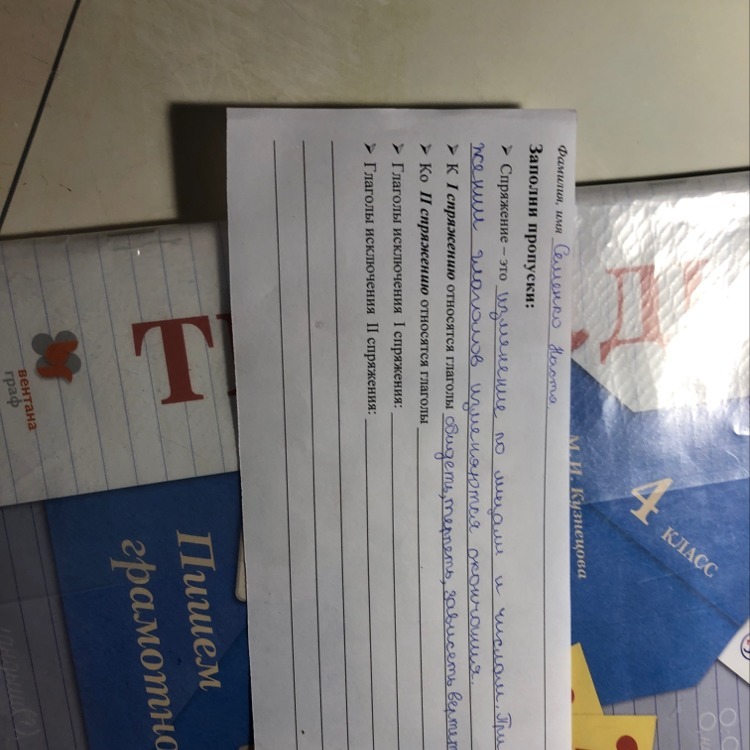 Фамилия, имя Семенко Настя
Заполни пропуски:
➤ Спряжение – это изменение по лицам и числам. При
жении глаголов изменяются окончания.
➤ К I спряжению относятся глаголы обидеть, терпеть, зависеть верт
➤ Ко II спряжению относятся глаголы
➤ Глаголы исключения I спряжения:
➤ Глаголы исключения II спряжения:
вентана
граф
Т
Пишем
грамотно
М.И. Кузнецова
4 КЛАСС